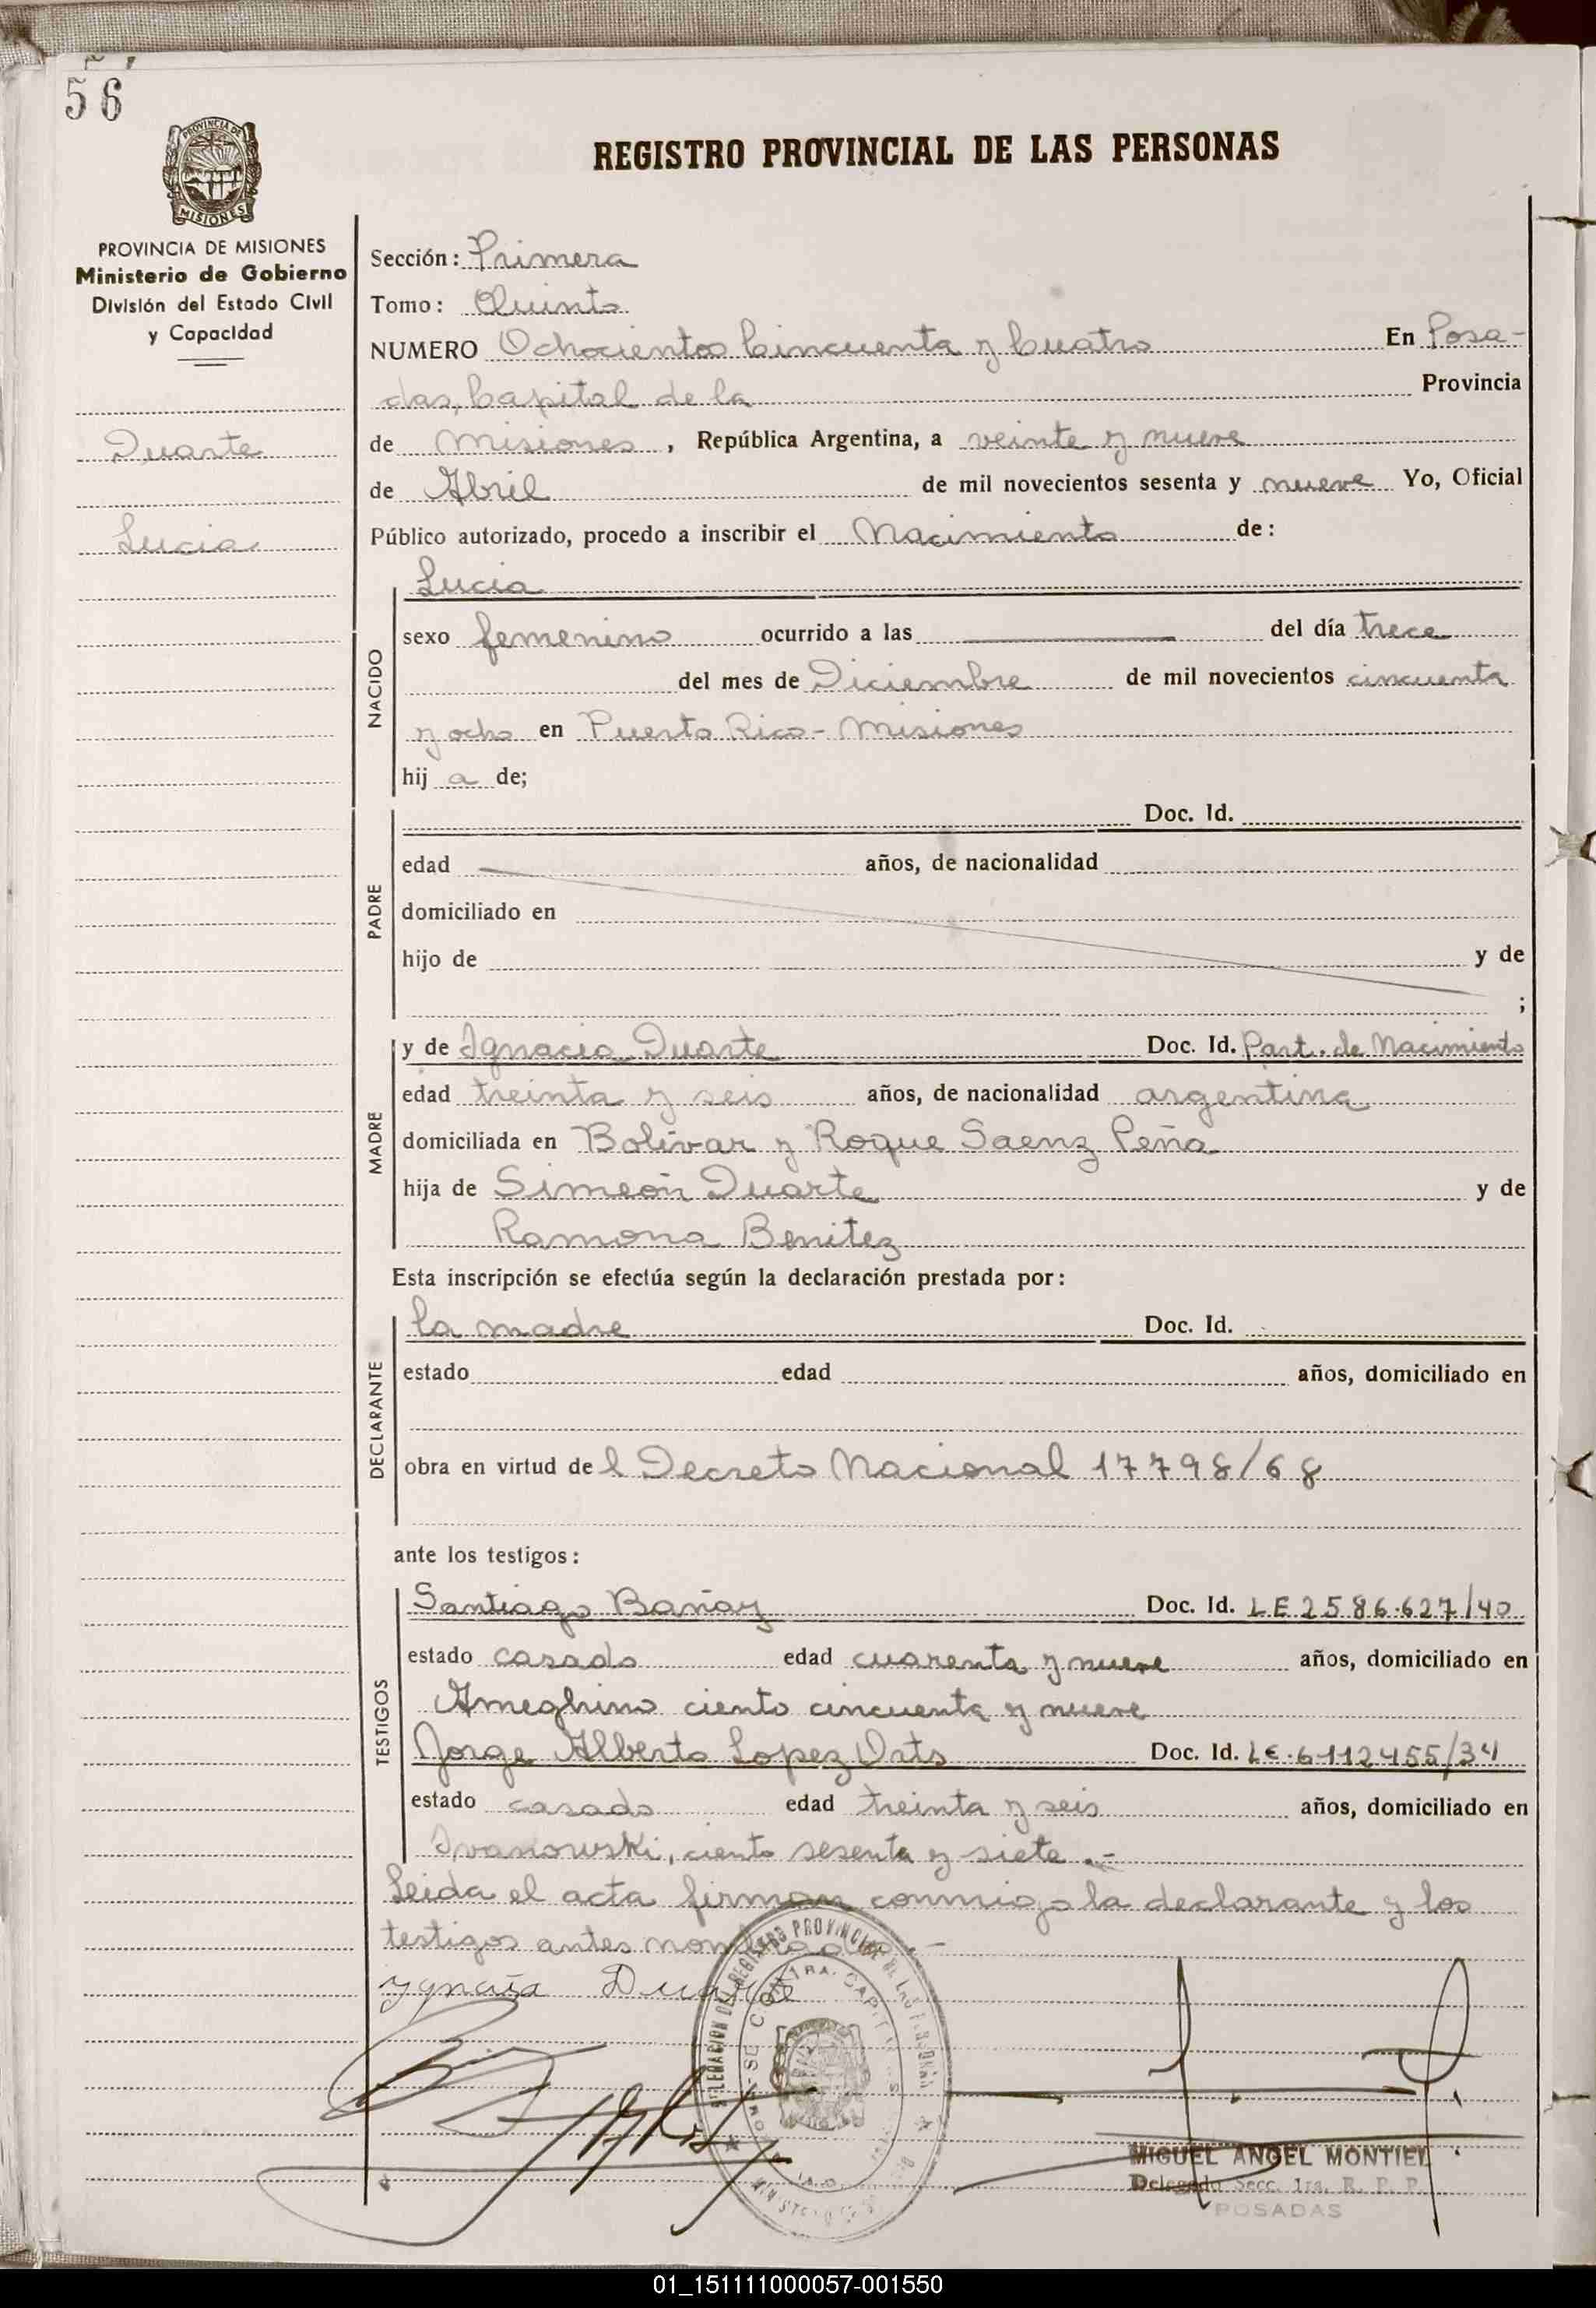 56
PROVINCIA DE
MISIONES
REGISTRO PROVINCIAL DE LAS PERSONAS
PROVINCIA DE MISIONES
Ministerio de Gobierno
División del Estado Civil
y Capacidad
Duarte
Lucia
Sección: Primera
Tomo: Quinto
NUMERO Ochocientos Cincuenta y Cuatro En Posa-
das, Capital de la Provincia
de Misiones, República Argentina, a veinte y nueve
de Abril de mil novecientos sesenta y nueve Yo, Oficial
Público autorizado, procedo a inscribir el Nacimiento de:
NACIDO
Lucia
sexo femenino ocurrido a las del día trece
del mes de Diciembre de mil novecientos cincuenta
y ocho en Puerto Rico - Misiones
hij a de;
PADRE
Doc. Id.
edad años, de nacionalidad
domiciliado en
hijo de y de
;
MADRE
y de Ignacia Duarte Doc. Id. Part. de Nacimiento
edad treinta y seis años, de nacionalidad argentina
domiciliada en Bolívar y Roque Saenz Peña
hija de Simeón Duarte y de
Ramona Benitez
Esta inscripción se efectúa según la declaración prestada por:
DECLARANTE
la madre Doc. Id.
estado edad años, domiciliado en
obra en virtud de l Decreto Nacional 17798/68
ante los testigos:
TESTIGOS
Santiago Bañay Doc. Id. LE 2586.627/40
estado casado edad cuarenta y nueve años, domiciliado en
Ameghino ciento cincuenta y nueve
Jorge Alberto Lopez Orts Doc. Id. LE.6112455/34
estado casado edad treinta y seis años, domiciliado en
Ivanowski, ciento sesenta y siete.-
Leida el acta firman conmigo la declarante y los
testigos antes nombrados.-
Ygnacia Duarte
MIGUEL ANGEL MONTIEL
Delegado Secc. 1ra. R. P. P.
POSADAS
01_151111000057-001550